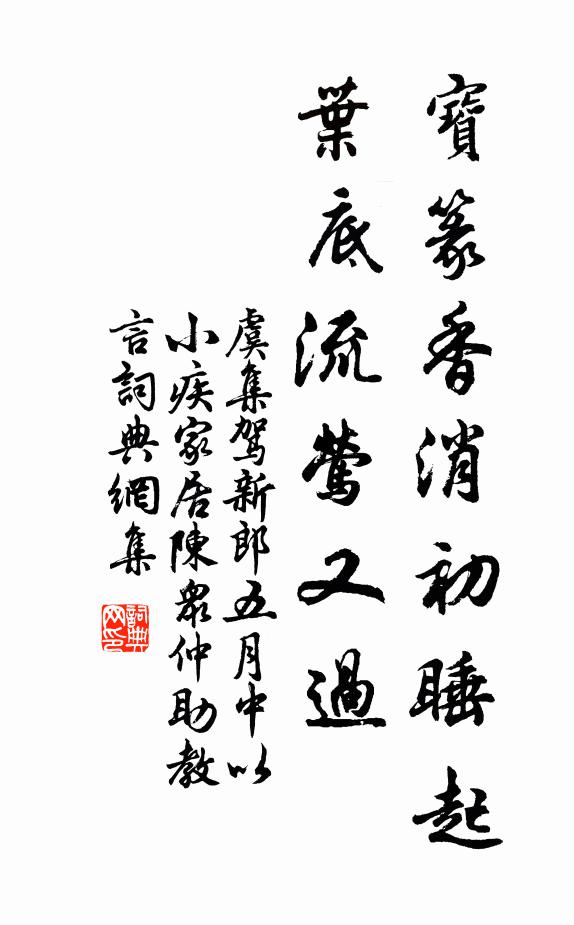 寶篆香消初睡起
葉底流鶯又過
虞集駕新郎五月中以
小疾家居陳衆仲助教
言詞典網集
詞典
网印